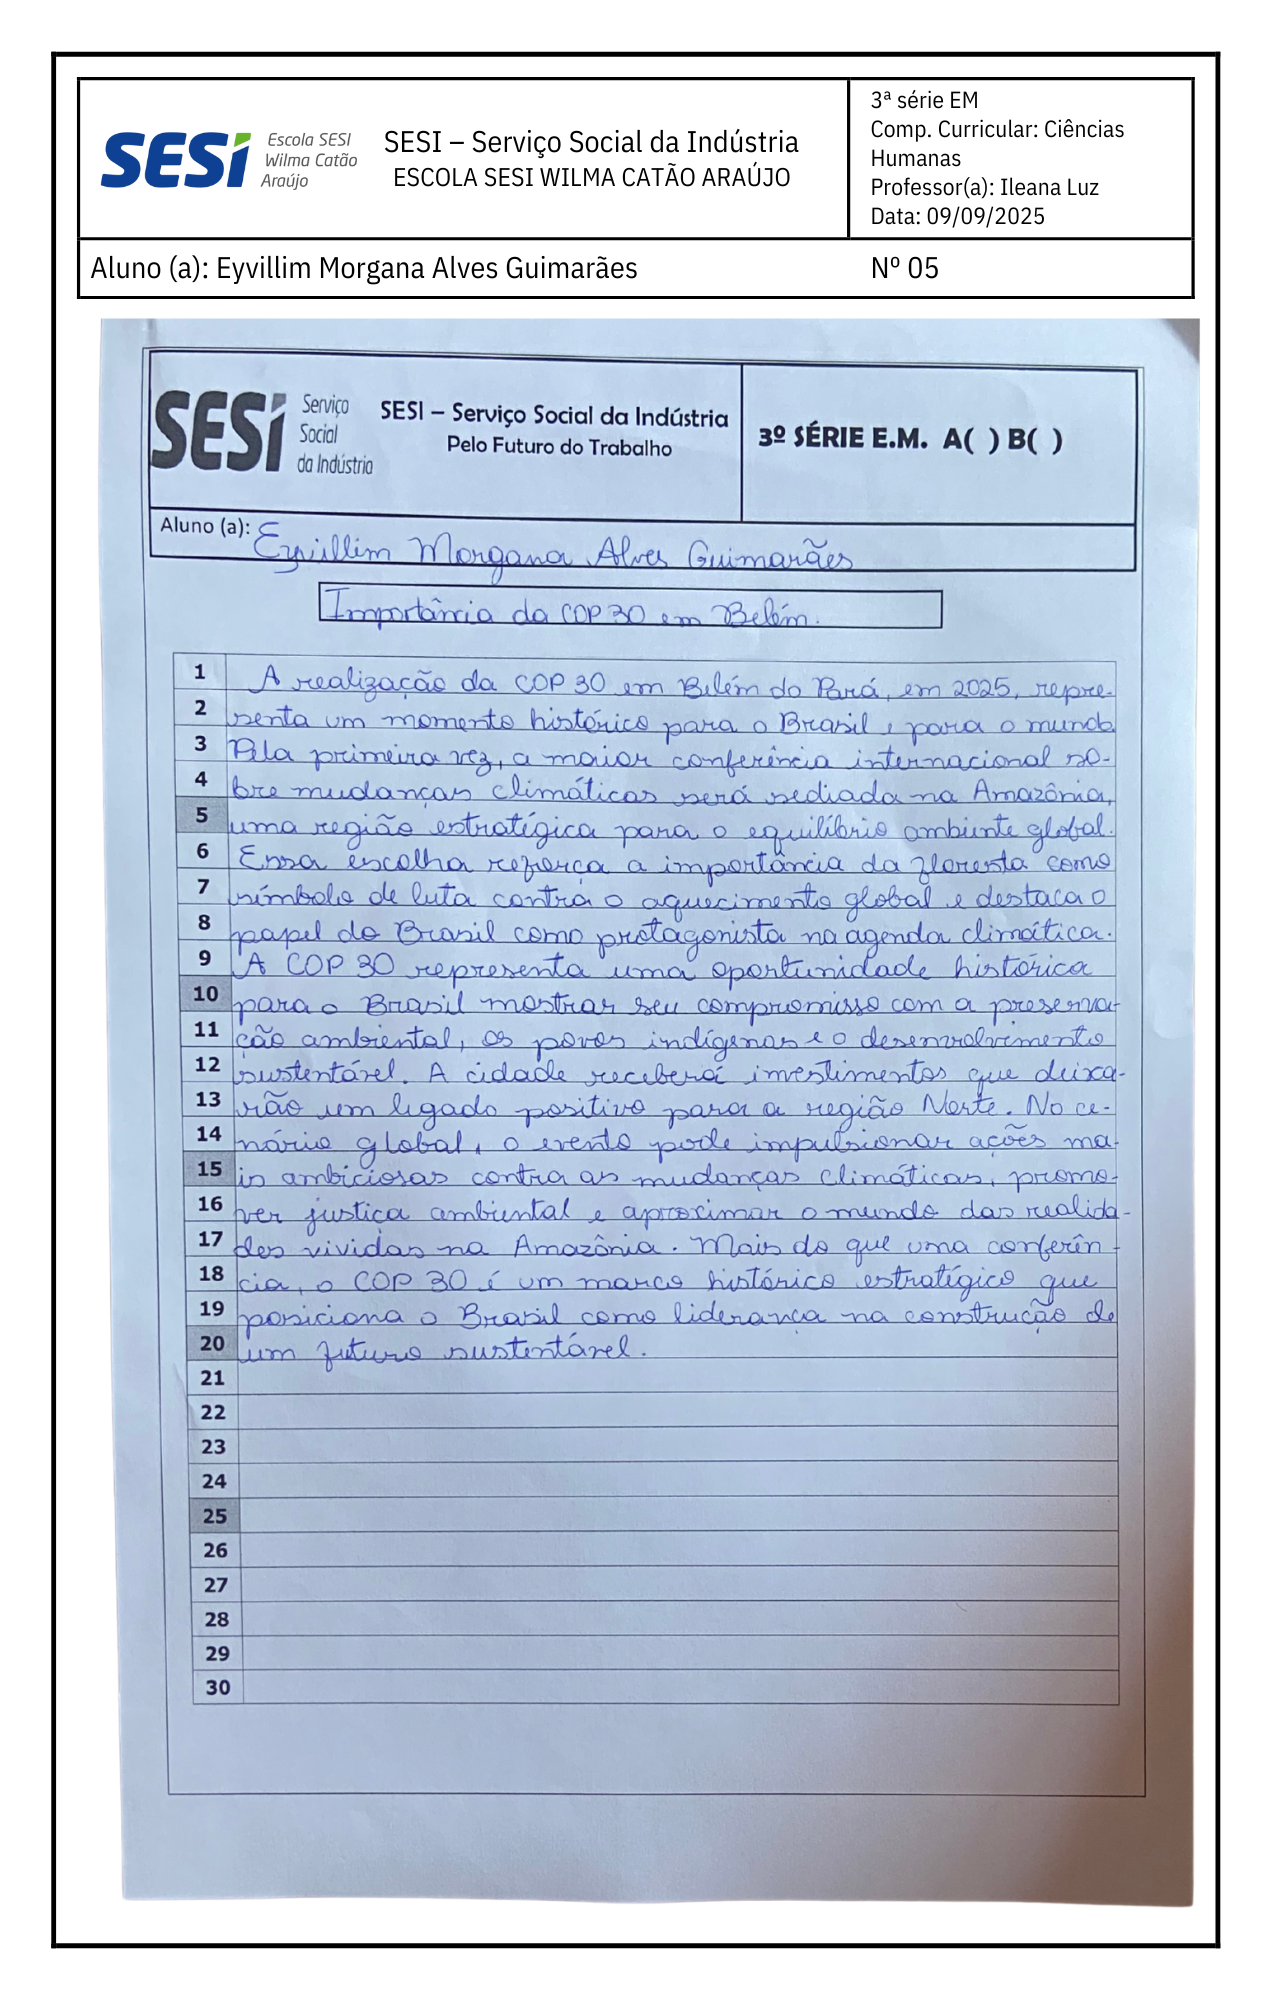 SESI Escola SESI Wilma Catão Araújo
SESI – Serviço Social da Indústria
ESCOLA SESI WILMA CATÃO ARAÚJO
3ª série EM
Comp. Curricular: Ciências
Humanas
Professor(a): Ileana Luz
Data: 09/09/2025
Aluno (a): Eyvillim Morgana Alves Guimarães Nº 05
SESI Serviço Social da Indústria
SESI – Serviço Social da Indústria
Pelo Futuro do Trabalho
3º SÉRIE E.M. A( ) B( )
Aluno (a): Eyvillim Morgana Alves Guimarães
Importância da COP 30 em Belém.
1 A realização da COP 30 em Belém do Pará, em 2025, repre-
2 senta um momento histórico para o Brasil e para o mundo.
3 Pela primeira vez, a maior conferência internacional so-
4 bre mudanças climáticas será sediada na Amazônia,
5 uma região estratégica para o equilíbrio ambiente global.
6 Essa escolha reforça a importância da floresta como
7 símbolo de luta contra o aquecimento global e destaca o
8 papel do Brasil como protagonista na agenda climática.
9 A COP 30 representa uma oportunidade histórica
10 para o Brasil mostrar seu compromisso com a preserva-
11 ção ambiental, os povos indígenas e o desenvolvimento
12 sustentável. A cidade receberá investimentos que deixa-
13 rão um legado positivo para a região Norte. No ce-
14 nário global, o evento pode impulsionar ações ma-
15 is ambiciosas contra as mudanças climáticas, promo-
16 ver justiça ambiental e aproximar o mundo das realida-
17 des vividas na Amazônia. Mais do que uma conferên-
18 cia, o COP 30 é um marco histórico estratégico que
19 posiciona o Brasil como liderança na construção de
20 um futuro sustentável.
21
22
23
24
25
26
27
28
29
30